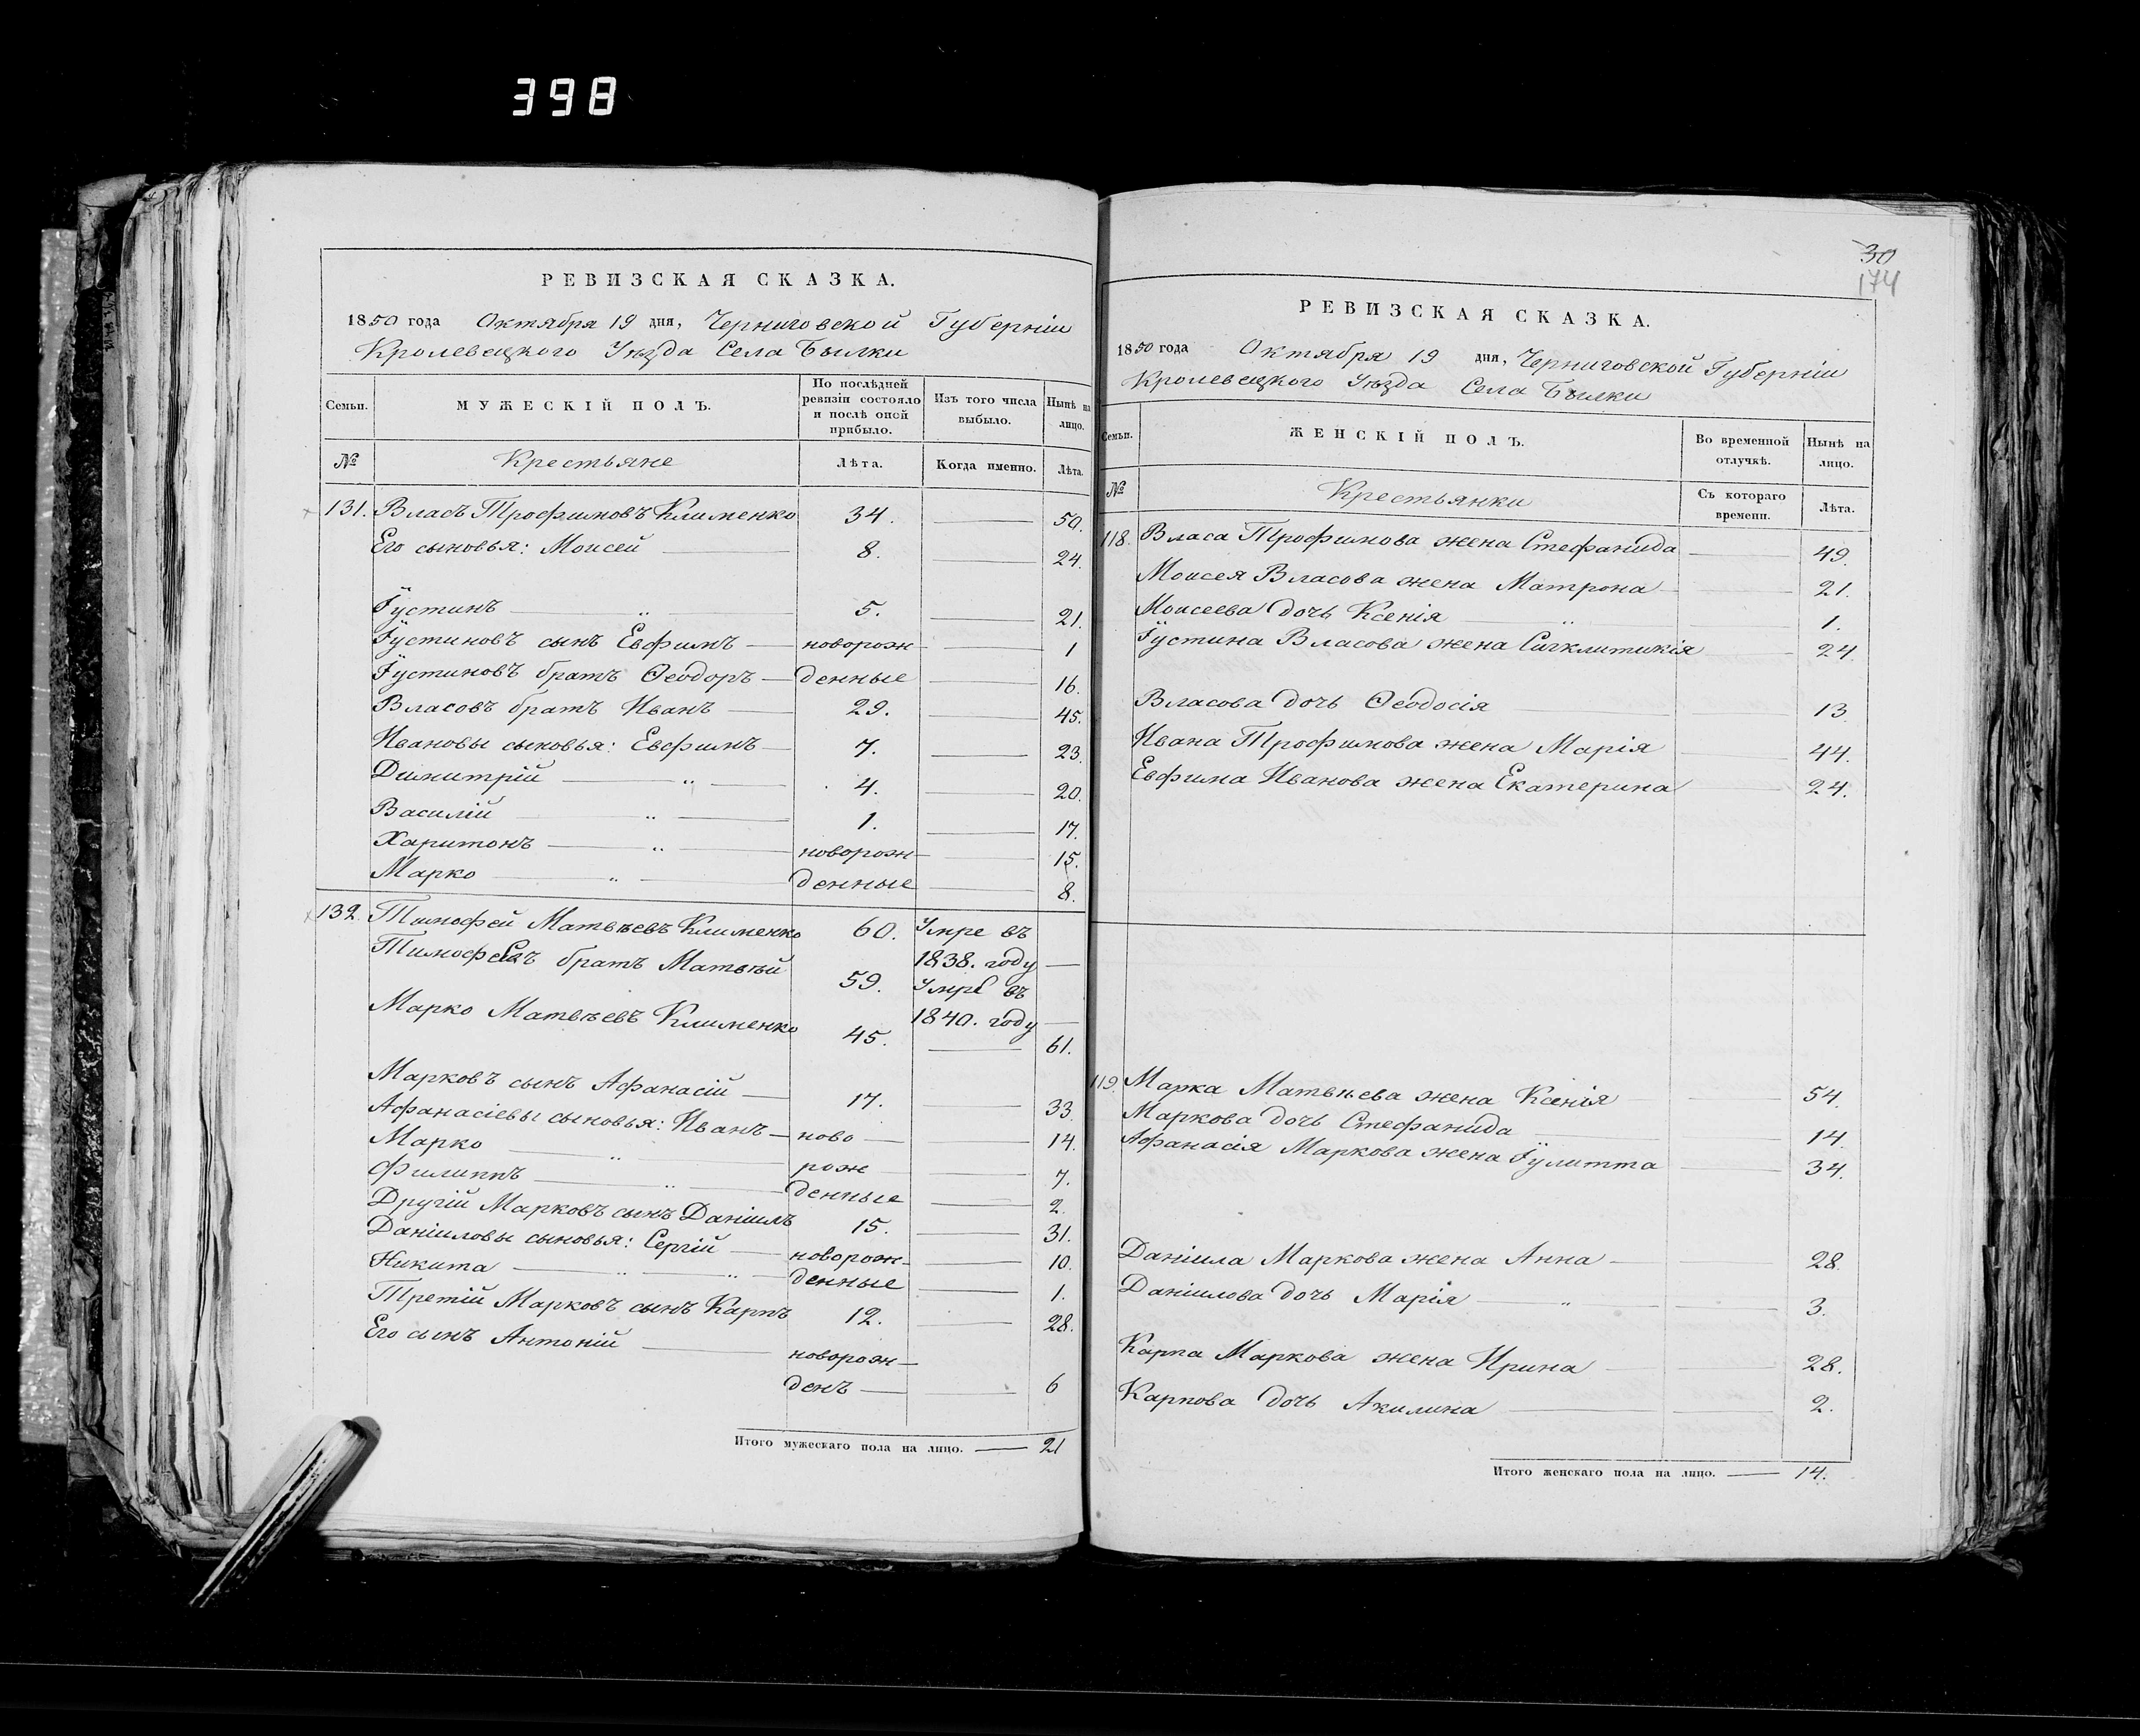 398
РЕВИЗСКАЯ СКАЗКА.
1850 года Октября 19 дня, Черниговской Губерніи
Кролевецкого Уѣзда Села Былки
Семьи.
МУЖЕСКІЙ ПОЛЪ.
По послѣдней ревизіи состояло и послѣ оной прибыло.
Изъ того числа выбыло.
Нынѣ на лицо.
№ Крестьяне Лѣта. Когда именно. Лѣта.
131. Власъ Трофимовъ Клименко 34. 50.
Его сыновья: Моисей 8. 24.
Іустинъ " 5. 21.
Іустиновъ сынъ Евфимъ новорож 1
Іустиновъ братъ Ѳеодоръ денные 16.
Власовъ братъ Иванъ 29. 45.
Ивановы сыновья: Евфимъ 7. 23.
Димитрій " 4. 20.
Василій " 1. 17.
Харитонъ " новорож 15.
Марко " денные 8.
132. Тимофей Матвѣевъ Клименко 60. Умре въ
1838. году
Тимофеевъ братъ Матвѣй 59. Умре въ
1840. году
Марко Матвѣевъ Клименко 45. 61.
Марковъ сынъ Афанасій 17. 33.
Афанасіевы сыновья: Иванъ ново 14.
Марко " рож 7.
Филиппъ " денные 2.
Другій Марковъ сынъ Даніилъ 15. 31.
Даніиловы сыновья: Сергій новорож 10.
Никита " " денные 1.
Третій Марковъ сынъ Карпъ 12. 28.
Его сынъ Антоній новорож
денъ 6
Итого мужескаго пола на лицо. 21
30
174
РЕВИЗСКАЯ СКАЗКА.
1850 года Октября 19 дня, Черниговской Губерніи
Кролевецкого Уѣзда Села Былки
Семьи.
ЖЕНСКІЙ ПОЛЪ.
Во временной отлучкѣ.
Нынѣ на лицо.
№ Крестьянки Съ котораго времени. Лѣта.
118. Власа Трофимова жена Стефанида 49.
Моисея Власова жена Матрона 21.
Моисеева дочь Ксенія " 1.
Іустина Власова жена Сигклитикія 24.
Власова дочь Ѳеодосія 13
Ивана Трофимова жена Марія 44.
Евфима Иванова жена Екатерина 24.
119. Марка Матвѣева жена Ксенія 54.
Маркова дочь Стефанида 14.
Афанасія Маркова жена Іулитта 34.
Даніила Маркова жена Анна 28.
Даніилова дочь Марія " 3.
Карпа Маркова жена Ирина 28.
Карпова дочь Акилина 2.
Итого женскаго пола на лицо. 14.